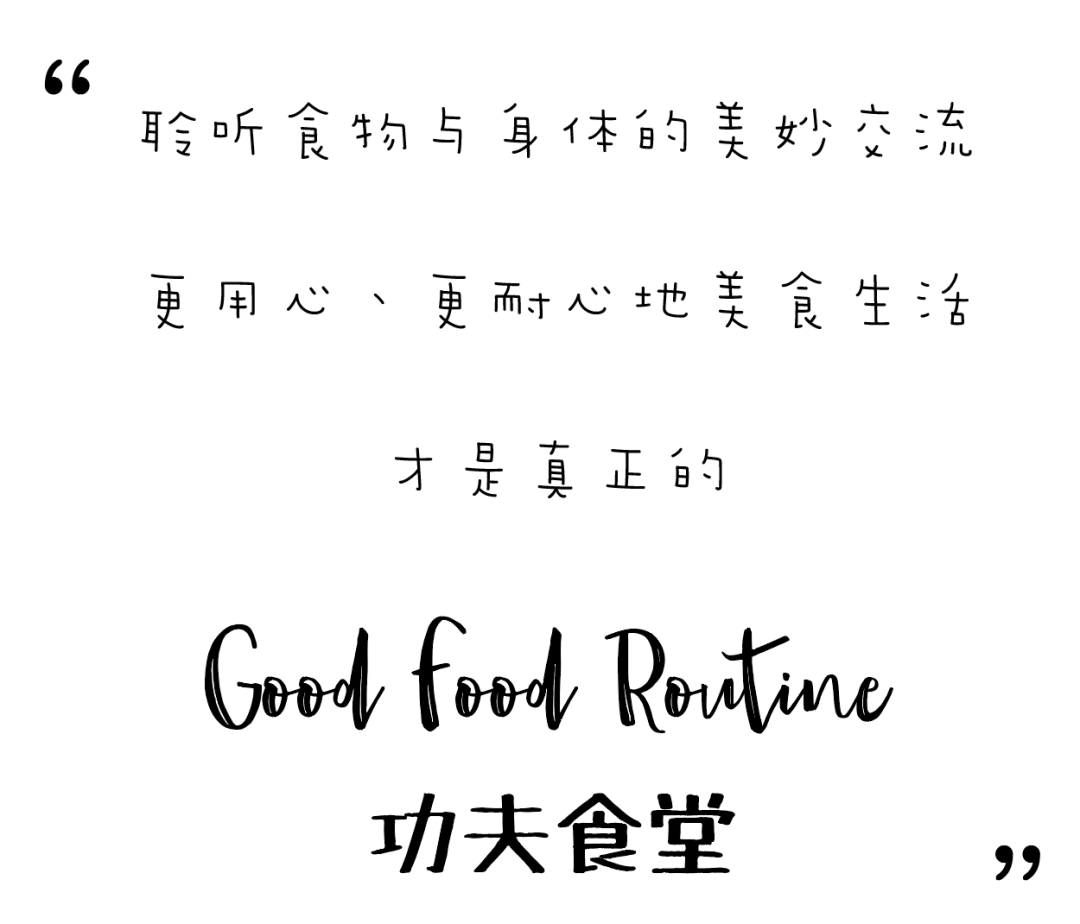 “
聆听食物与身体的美妙交流
更用心、更耐心地美食生活
才是真正的
Good Food Routine
功夫食堂
”